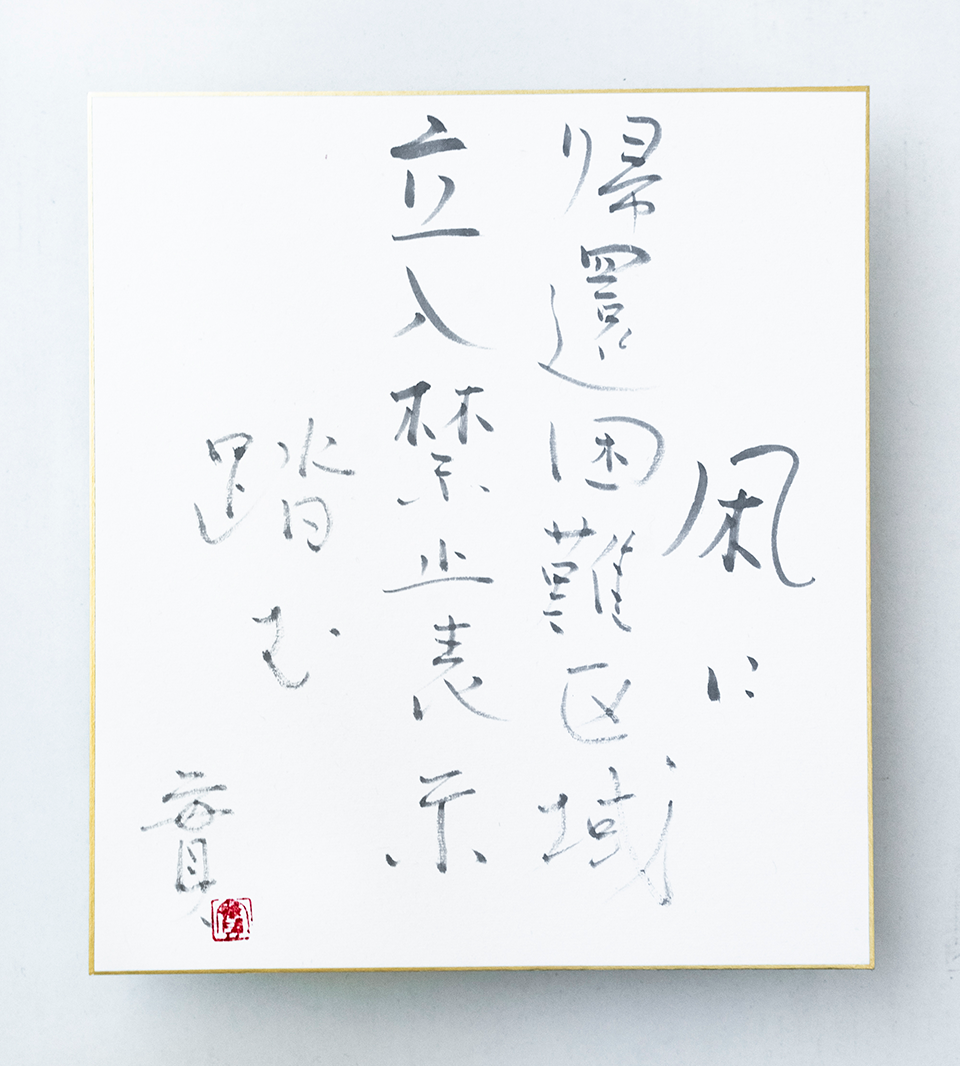 凩に
帰還困難区域
立入禁止表示
踏む
實